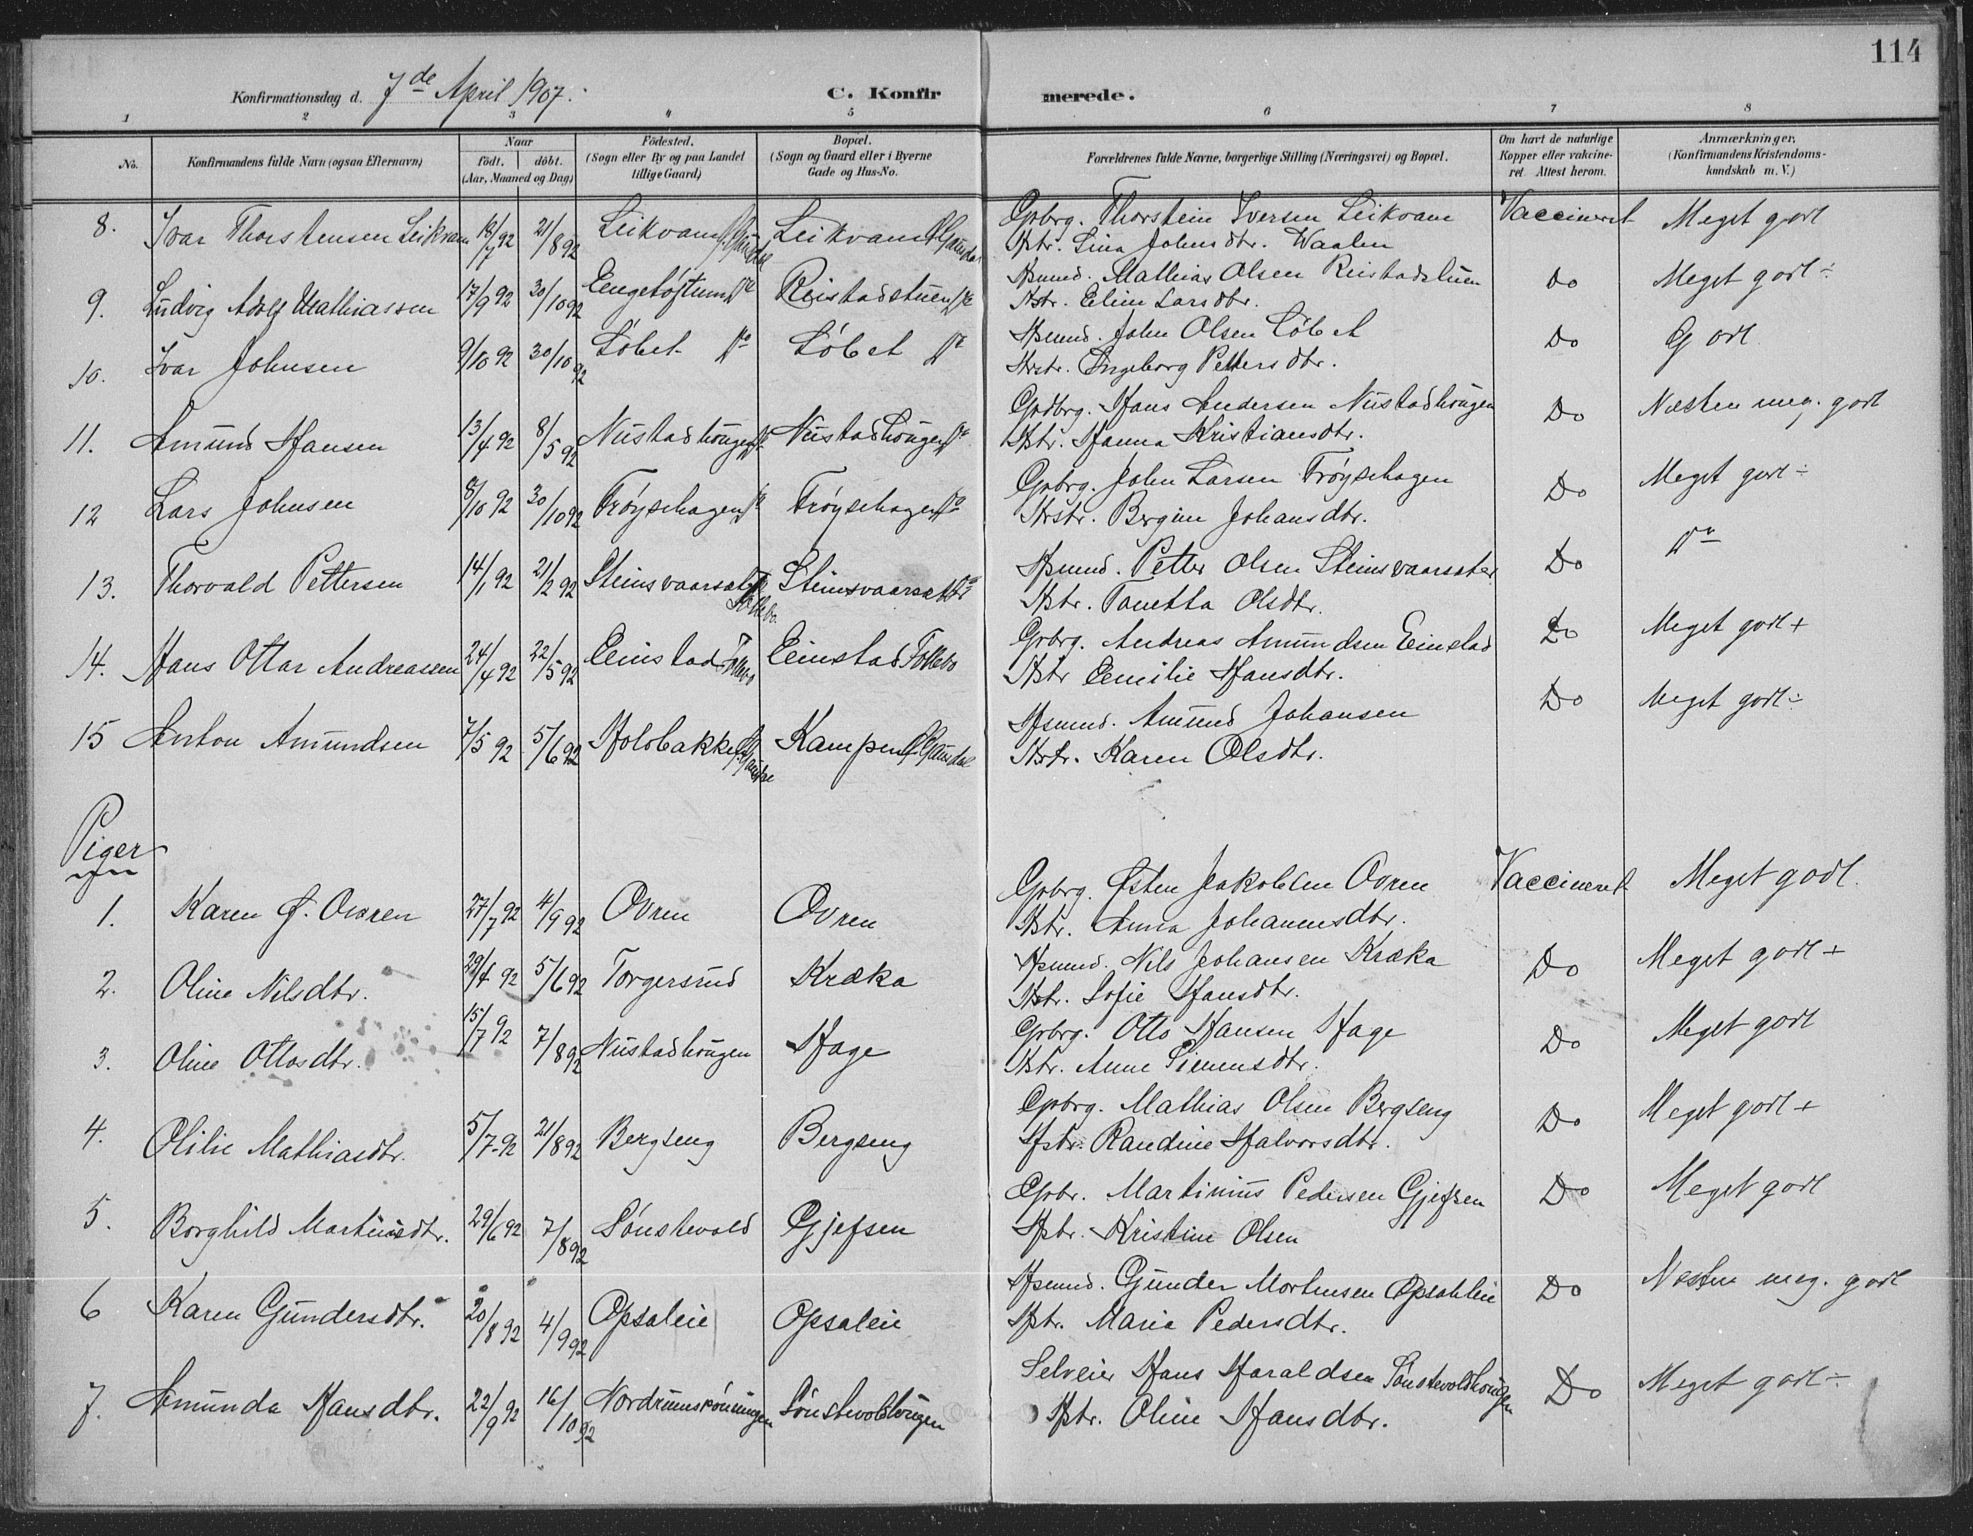 114
Konfirmationsdag d. 7de April 1907.
C. Konfirmerede.
1 2 3 4 5 6 7 8
No. Konfirmandens fulde Navn (ogsaa Efternavn) Naar födt. döbt. (Aar, Maaned og Dag) Födested. (Sogn eller By og paa Landet tillige Gaard) Bopæl. (Sogn og Gaard eller i Byerne Gade og Hus-No. Forældrenes fulde Navne, borgerlige Stilling (Næringsvei) og Bopæl. Om havt de naturlige Kopper eller vakcineret. Attest herom. Anmærkninger. (Konfirmandens Kristendomskundskab m. V.)
8. Ivar Thorstensen Leikvam 18/7 92 21/8 92 Leikvam Leikvam Gbrg. Thorstein Iversen Leikvam Vaccineret Meget godt
Hstr. Lina Johnsdtr. Waalen
9. Ludvig Adolf Mathiassen 17/9 92 30/10 92 Do Reistadstuen Do Hsmnd. Mathias Olsen Reistadstuen Do Meget godt ÷
Hstr. Eline Larsdtr.
10. Ivar Johnsen 9/10 92 30/10 92 Løbet Do Løbet Do Hsmnd. John Olsen Løbet Do Godt
Hstr. Ingeborg Pettersdtr.
11. Amund Hansen 13/4 92 8/5 92 Nustadhougen Do Nustadhougen Do Gbrg. Hans Andersen Nustadhougen Do Næsten meg. godt
Hstr. Hanna Kristiansdtr.
12 Lars Johnsen 8/10 92 30/10 92 Frøysehagen Do Frøysehagen Do Gbrg. John Larsen Frøysehagen Do Meget godt ÷
Hstr. Bergine Johansdtr.
13. Thorvald Pettersen 14/1 92 21/2 92 Steinsvaarsæt Follebo Steinsvaarsæt Do Hsmnd. Petter Olsen Steinsvaarsæter Do Do
Hstr. Tanetta Olsdtr.
14. Hans Ottar Andreassen 24/4 92 22/5 92 Eeinstad Follebo Eeinstad Follebo Gbrg. Andreas Amundsen Eeinstad Do Meget godt +
Hstr Eemilie Hansdtr.
15 Anton Amundsen 7/5 92 5/6 92 Holobakken Ø. Gausdal Kampen Ø Gausdal Hsmnd. Amund Johansen Do Meget godt ÷
Hstr. Karen Olsdtr.
Piger
1. Karen Ø. Ovren 27/7 92 4/9 92 Ovren Ovren Gbrg. Østen Jakobsen Ovren Vaccineret Meget godt.
Hstr. Anna Johannesdtr.
2. Oline Nilsdtr. 29/4 92 5/6 92 Torgersrud Kræka Hsmnd. Nils Johansen Kræka Do Meget godt +
Hstr. Sofie Hansdtr.
3. Oline Ottosdtr. 15/7 92 7/8 92 Nustadhougen Hage Gbrg. Otto Hansen Hage Do Meget godt
Hstr. Anne Simensdtr.
4. Olilie Mathiasdtr. 5/7-92 21/8 92 Bergseng Bergseng Gbrg. Mathias Olsen Bergseng Do Meget godt +
Hstr. Randine Halvorsdtr.
5. Borghild Martinusdtr. 29/6 92 7/8 92 Sønstevold Gjefsen Gbr. Martinius Pedersen Gjefsen Do Meget godt
Hstr. Kristine Olsen
6 Karen Gundersdtr. 20/8 92 4/9 92 Opsaleie Opsaleie Hsmnd. Gunder Mortensen Opsahleie Do Næsten meg. godt
Hstr. Maria Pedersdtr.
7. Amunda Hansdtr. 22/9 92 16/10 92 Nordrumsrønningen Sønstevoldhougen Selveier Hans Haraldsen Sønstevoldhougen Do Meget godt ÷
Hstr. Oline Hansdtr.